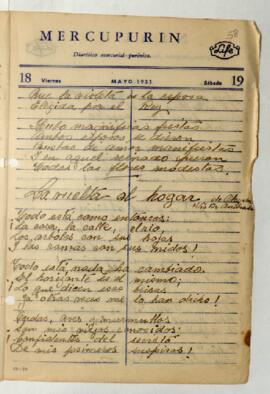 MERCUPURIN
58
Diurético mercurial-purínico.
Life
18 Viernes MAYO 1951 Sábado 19
Que la violeta es la esposa
Elegida por el Rey
Hubo magníficas fiestas
Ambos esposos se
de amor manifiestas
I en aquel reinado
Todas las flores modestas.
La vuelta al hogar. de Olegario
Víctor Andrade
¡Todo está como entonces:
¡La casa, la calle, el río,
Los árboles con sus hojas
I las ramas con sus nidos!
Todo está, nada ha cambiado,
El horizonte es el mismo;
Lo que dicen esas brisas
¡Ya otras veces me lo han dicho!
Ondas, aves y murmullos
Son mis viejos conocidos:
¡Confidentes del secreto
De mis primeros suspiros!